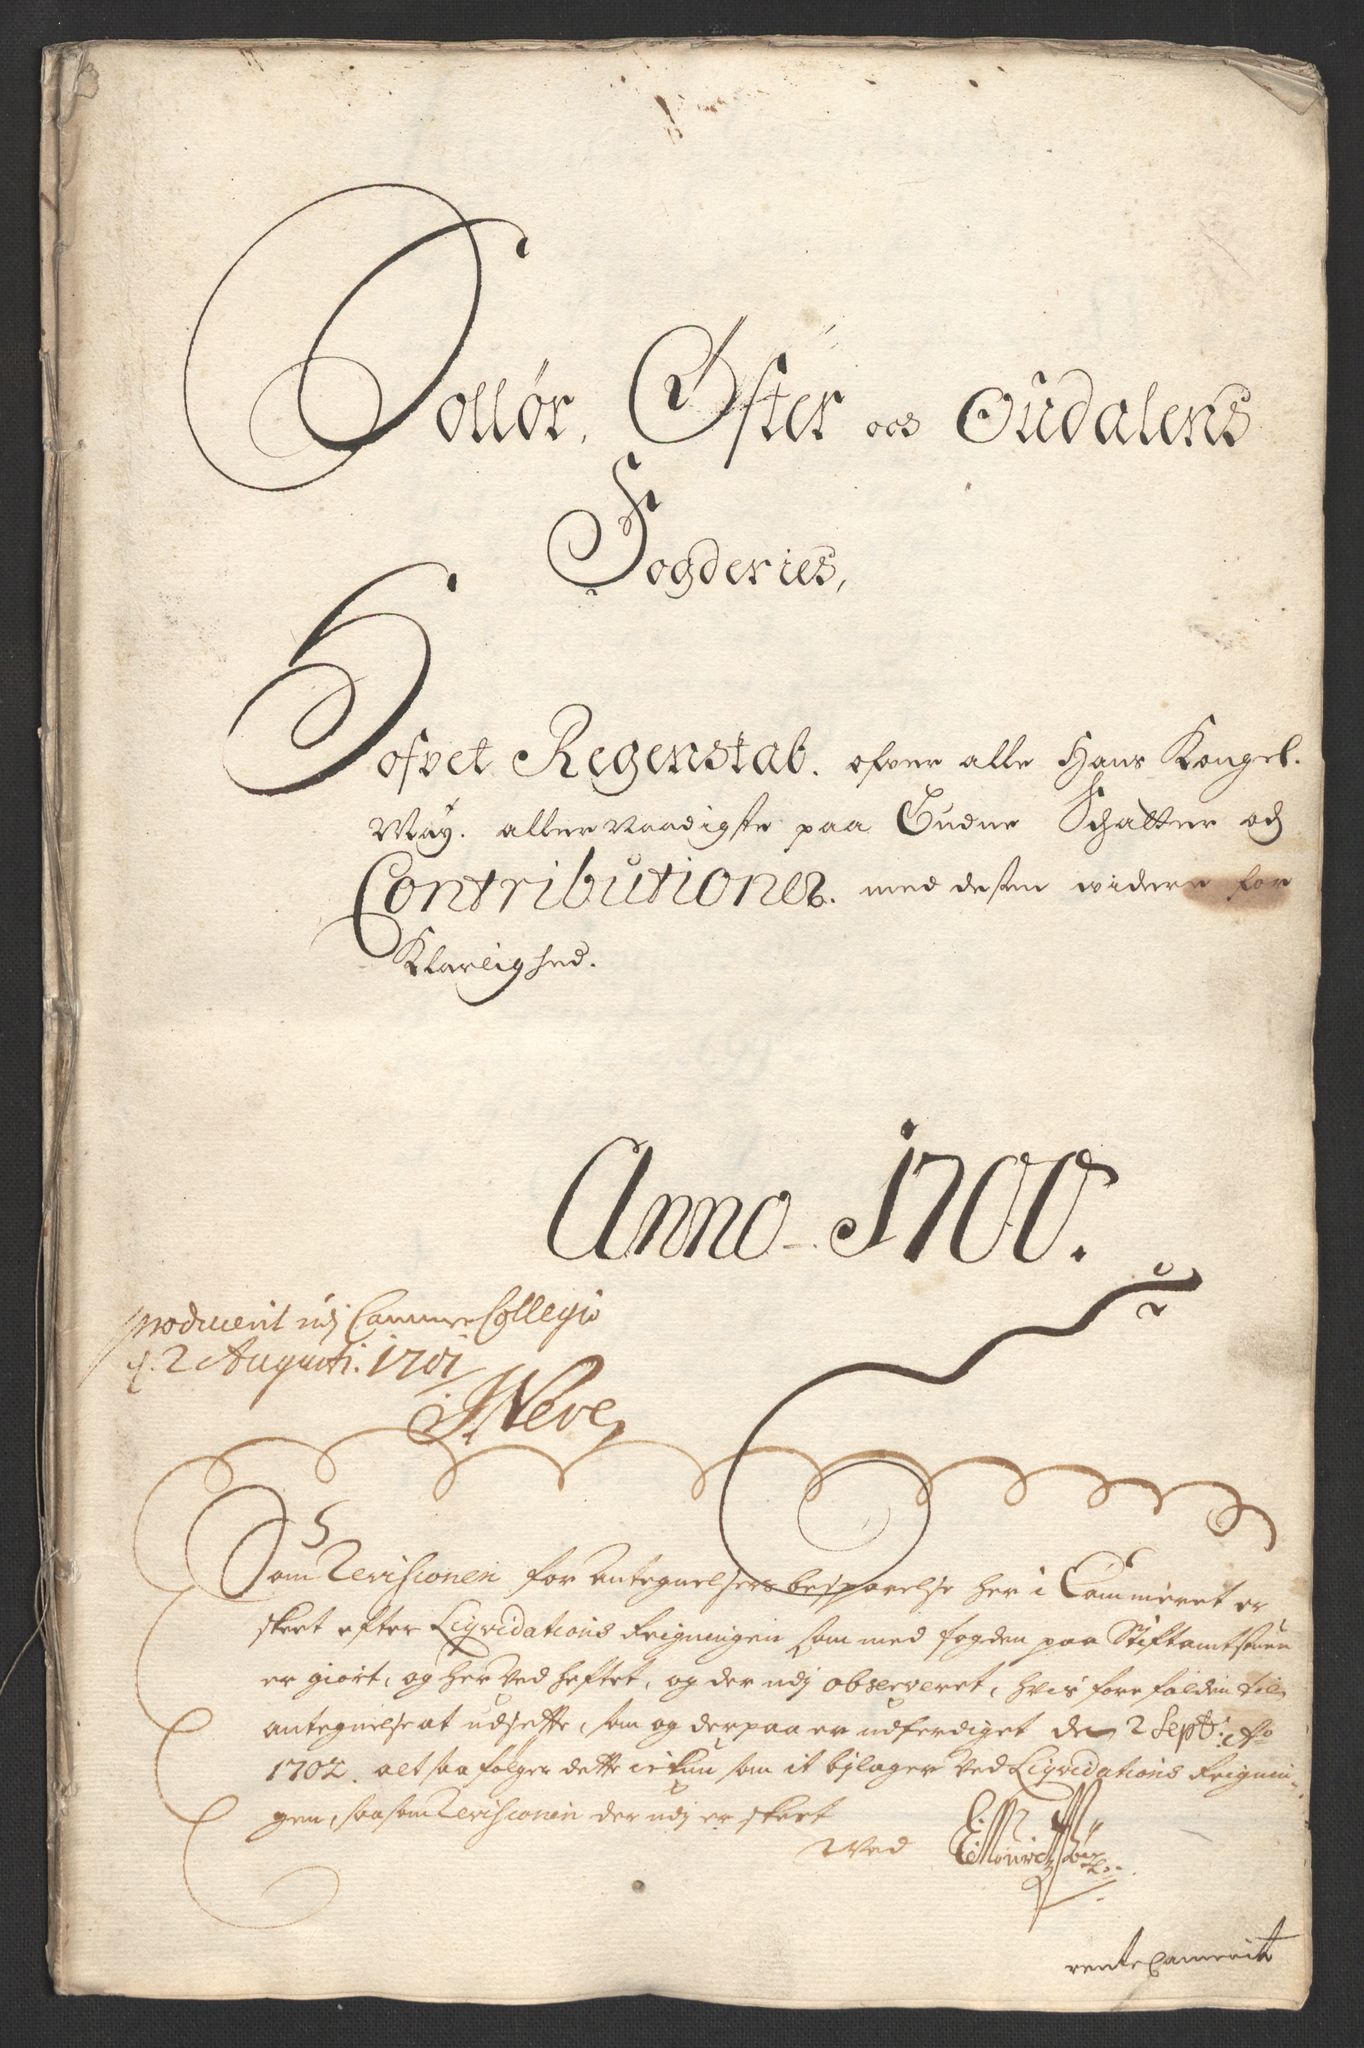 Sollør, Øster ocs Oudalens
Fogderies,
Hofvet Regenskab. ofver alle Hans Kongel.
May. allernaadigste paa Budne Schatter och
Contributioner. med desen widere for
Klarlighed.
Anno 1700.
producerit udj CammerCollegio
d. 2 Augusti. 1701
Som Revisionen for antegnelsers besparelse her i Cammeret er
skeet efter Liqvidations Reigningen som med fogden paa Stiftamtstuen
er giort, og her ved heftet, og der udj observeret, hvis forefalden til
antegnelse at udsette, som og derpaa er udferdiget den 2 Septb: Ao
1702. alt saa følger dette ickun som it bylager ved Liqvidations Reignin-
gen, saasom Revisionen der udj er skeet
Ved
renteCammerit